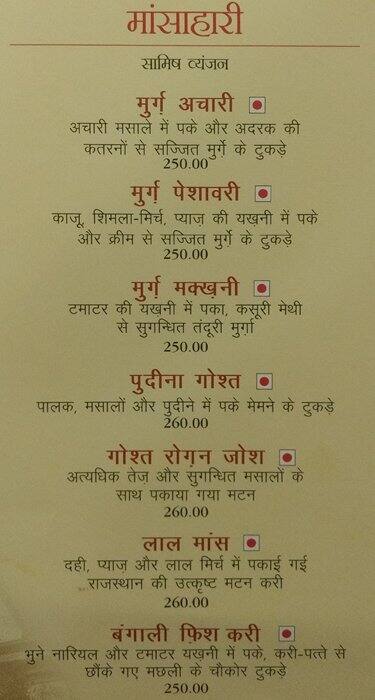 मांसाहारी
सामिष व्यंजन
मुर्ग़ अचारी
अचारी मसाले में पके और अदरक की
कतरनों से सज्जित मुर्ग़े के टुकड़े
250.00
मुर्ग़ पेशावरी
काजू, शिमला-मिर्च, प्याज़ की यख़नी में पके
और क्रीम से सज्जित मुर्ग़े के टुकड़े
250.00
मुर्ग़ मक्ख़नी
टमाटर की यख़नी में पका, कसूरी मेथी
से सुगन्धित तंदूरी मुर्ग़ा
250.00
पुदीना गोश्त
पालक, मसालों और पुदीने में पके मेमने के टुकड़े
260.00
गोश्त रोग़न जोश
अत्यधिक तेज़ और सुगन्धित मसालों के
साथ पकाया गया मटन
260.00
लाल मांस
दही, प्याज़ और लाल मिर्च में पकाई गई
राजस्थान की उत्कृष्ट मटन करी
260.00
बंगाली फ़िश करी
भुने नारियल और टमाटर यख़नी में पके, करी-पत्ते से
छौंके गए मछली के चौकोर टुकड़े
250.00